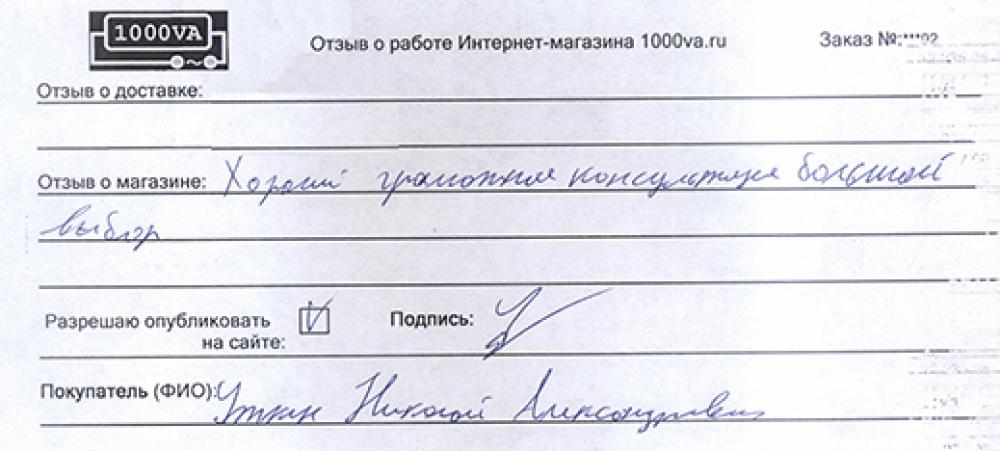 1000VA
Отзыв о работе Интернет-магазина 1000va.ru Заказ №:***02
Отзыв о доставке:
Отзыв о магазине: Хороший грамотная консультация большой
выбор
Разрешаю опубликовать Подпись:
на сайте:
Покупатель (ФИО): Уткин Николай Александрович